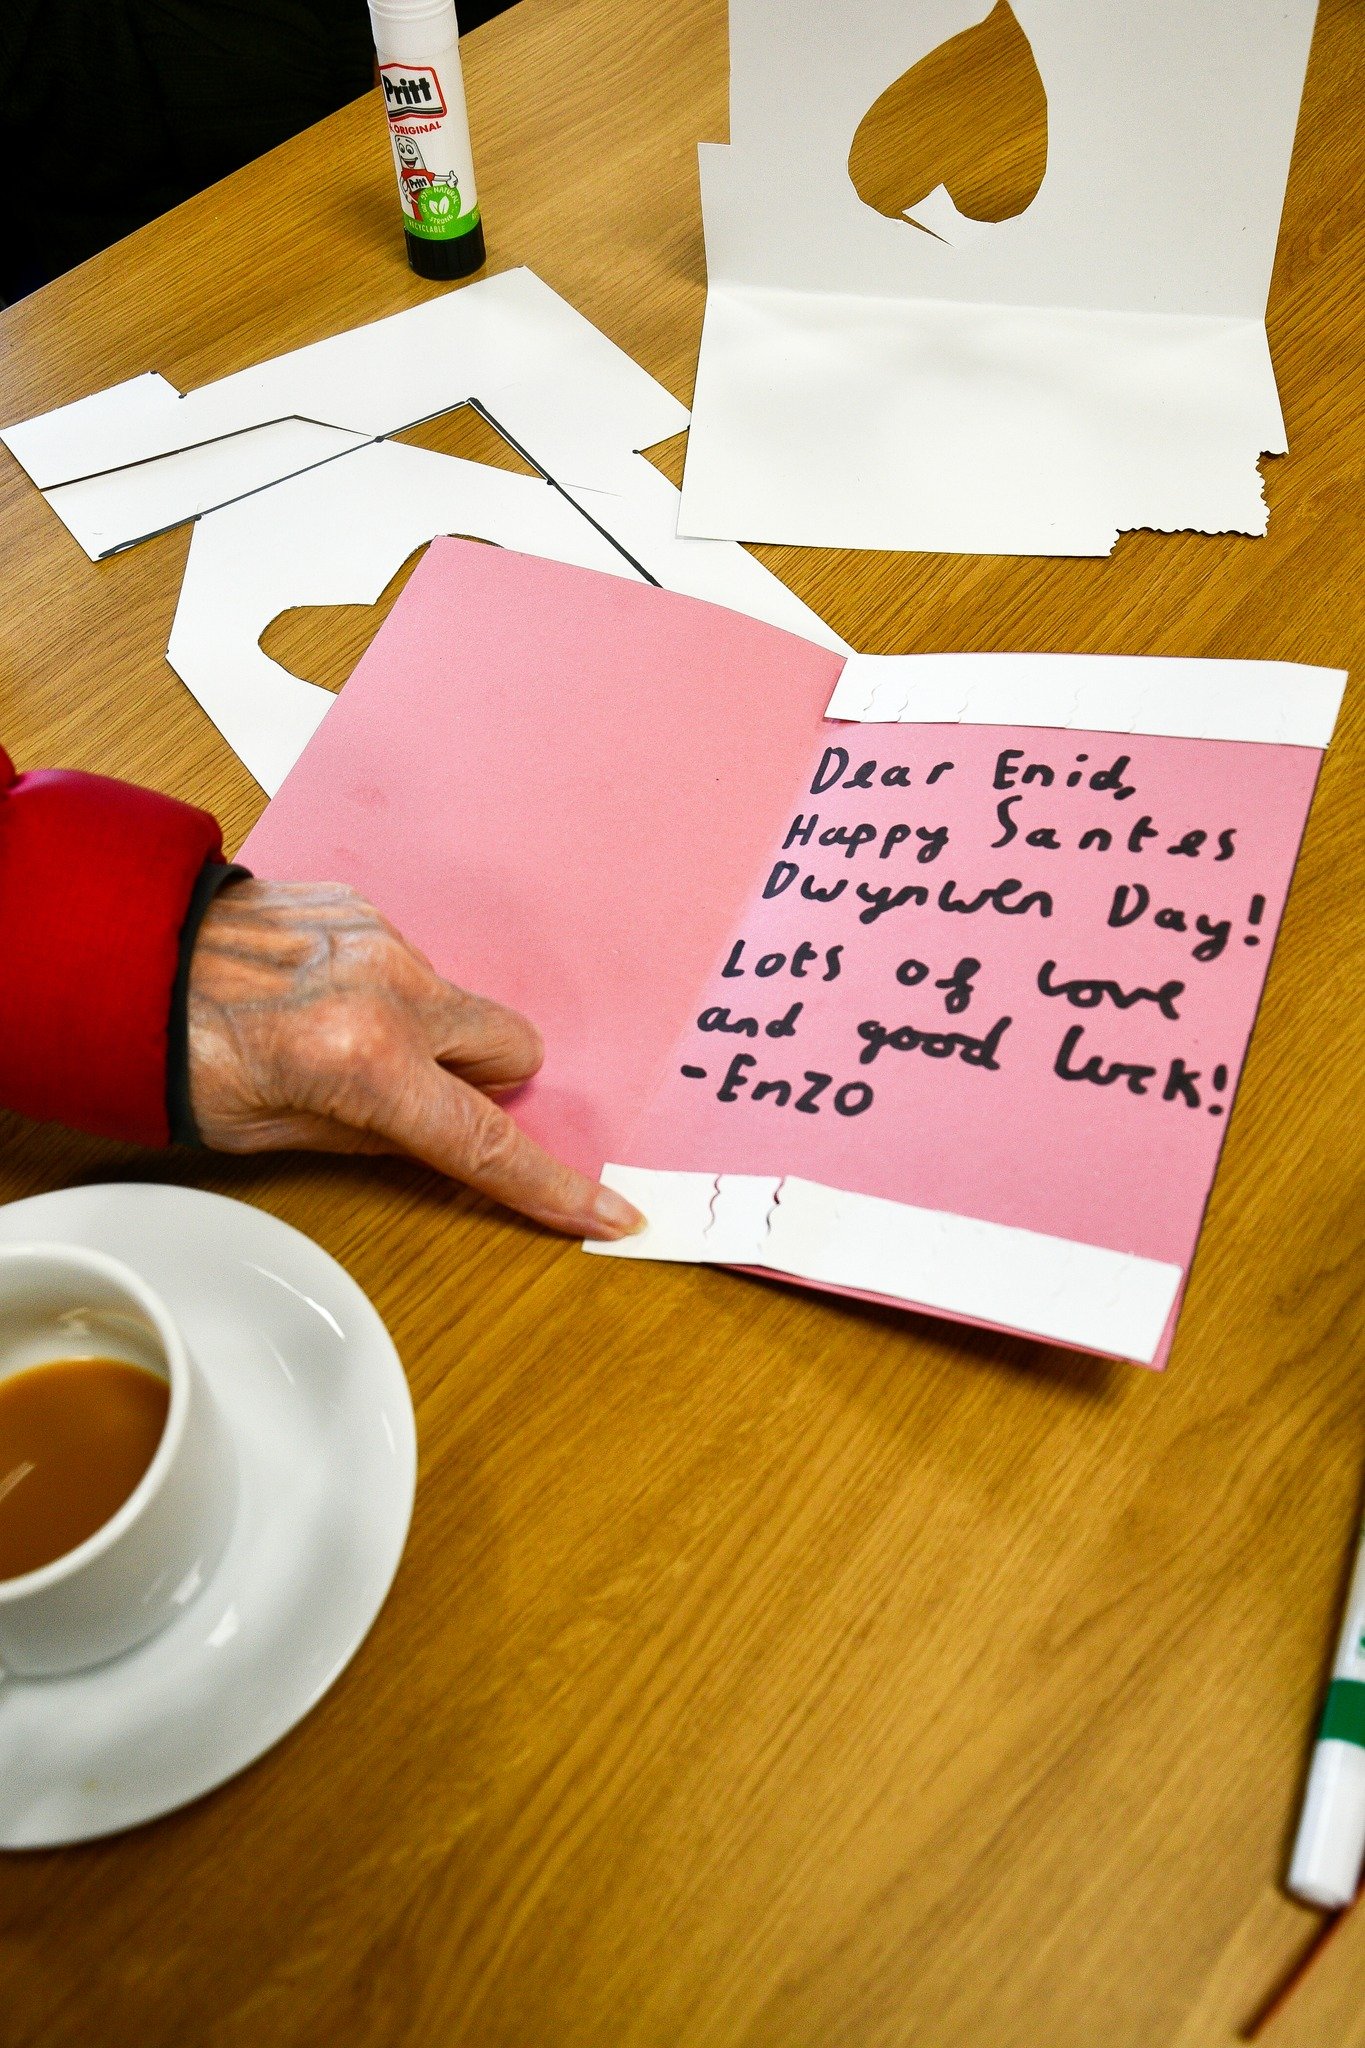 Pritt
ORIGINAL
Pritt
NATURAL
STRONG
RECYCLABLE
Dear Enid,
Happy Santes
Dwynwen Day!
Lots of love
and good luck!
-Enzo